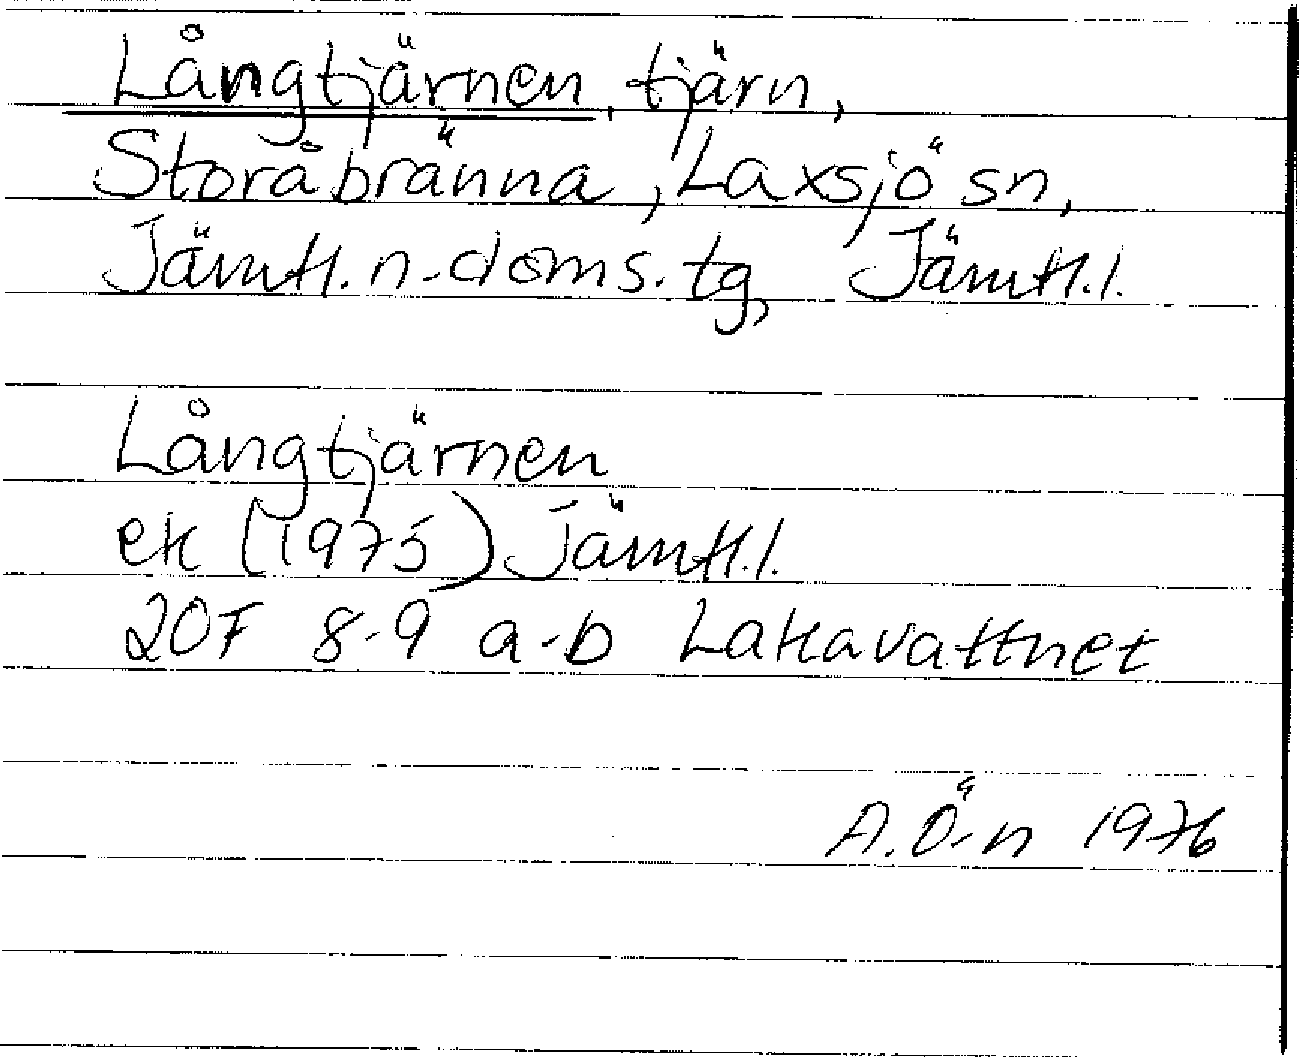 Långtjärnen, tjärn,
Storåbränna, Laxsjö sn,
Jämtl. n. doms. tg, Jämtl. l.
Långtjärnen
ek (1975) Jämtl. l.
20F 8-9 a-b Lakavattnet
A. Ö-n 1976